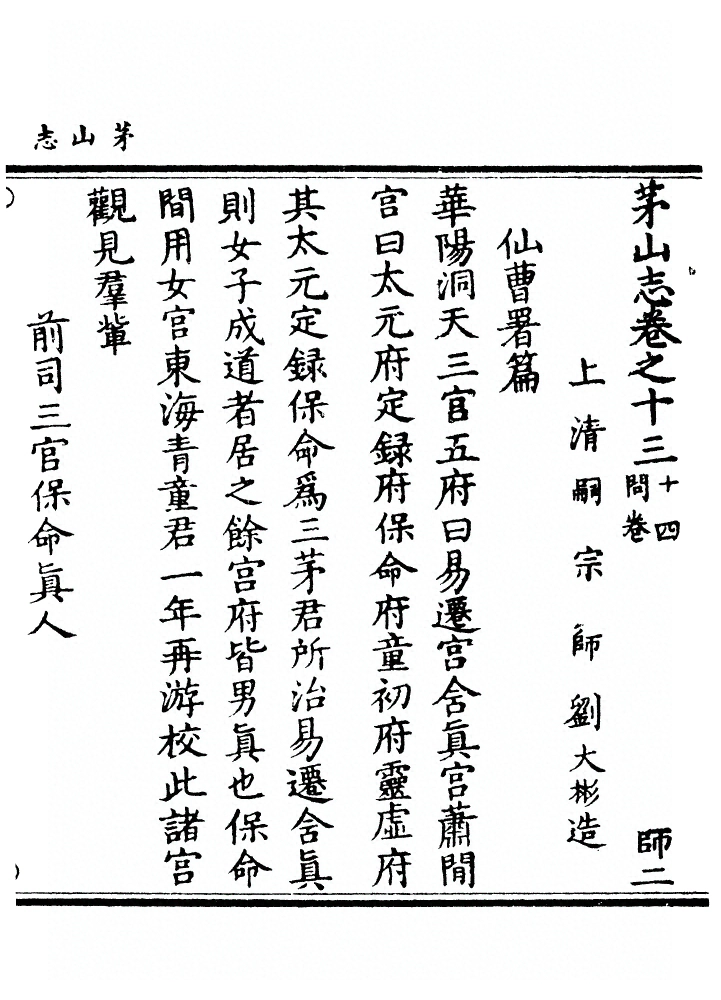 茅山志
茅山志卷之十三 十四同卷 師二
上清嗣宗師劉大彬造
仙曹署篇
華陽洞天三官五府曰易遷宮含眞宮蕭閒
宮曰太元府定録府保命府童初府靈虛府
其太元定録保命爲三茅君所治易遷含眞
則女子成道者居之餘宮府皆男眞也保命
間用女官東海青童君一年再游校此諸宮
觀見羣輩
前司三官保命眞人